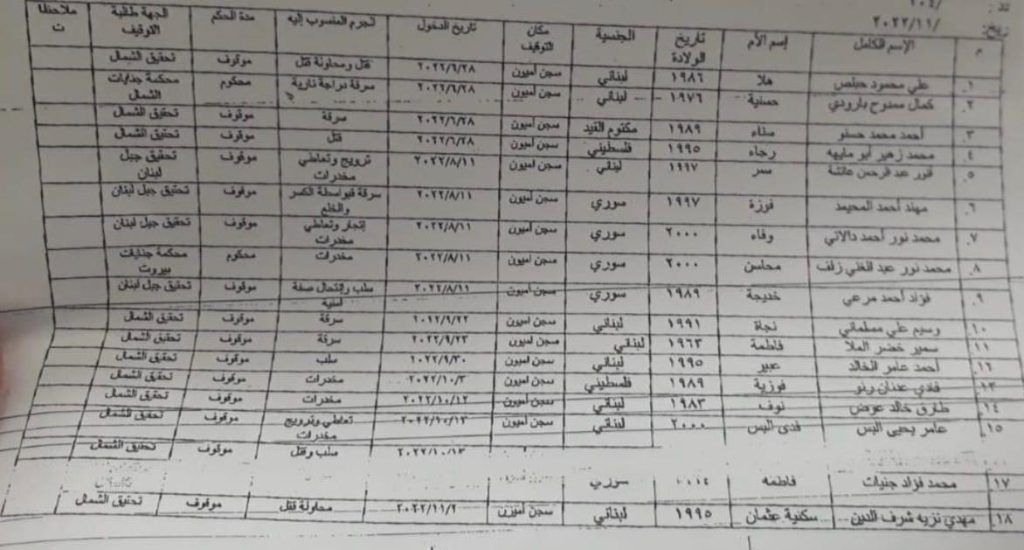 /٢٠٢٢/١١
م الإسم الكامل إسم الأم تاريخ الولادة الجنسية مكان التوقيف تاريخ الدخول الجرم المنسوب إليه مدة الحكم الجهة طالبة التوقيف ملاحظات
١. علي محمود حبلص هلا ١٩٨٦ لبناني سجن أميون ٢٠٢٢/٦/٢٨ قتل ومحاولة قتل موقوف تحقيق الشمال
٢. كمال ممدوح بارودي حسنية ١٩٧٦ لبناني سجن أميون ٢٠٢٢/٦/٢٨ سرقة دراجة نارية محكوم محكمة جنايات الشمال
٣. أحمد محمد حسنو سناء ١٩٨٩ مكتوم القيد سجن أميون ٢٠٢٢/٦/٢٨ سرقة موقوف تحقيق الشمال
٤. محمد زهير أبو رجاء ١٩٩٥ فلسطيني سجن أميون ٢٠٢٢/٦/٢٨ قتل موقوف تحقيق الشمال
٥. عبد الرحمن عائشة سمر ١٩٩٧ لبناني سجن أميون ٢٠٢٢/٨/١١ ترويج وتعاطي مخدرات موقوف تحقيق جبل لبنان
٦. مهند أحمد المحيمد فوزة ١٩٩٧ سوري سجن أميون ٢٠٢٢/٨/١١ سرقة بواسطة الكسر والخلع موقوف تحقيق جبل لبنان
٧. محمد نور أحمد دالاتي وفاء ٢٠٠٠ سوري سجن أميون ٢٠٢٢/٨/١١ إتجار وتعاطي مخدرات موقوف تحقيق جبل لبنان
٨. محمد نور عبد الغني زلف محاسن ٢٠٠٠ سوري سجن أميون ٢٠٢٢/٨/١١ مخدرات محكوم محكمة جنايات بيروت
٩. فؤاد أحمد مرعي خديجة ١٩٨٩ سوري سجن أميون ٢٠٢٢/٨/١١ سلب وإنتحال صفة أمنية موقوف تحقيق جبل لبنان
١٠. وسيم علي مسلماني نجاة ١٩٩١ لبناني سجن أميون ٢٠٢٢/٩/٢٢ سرقة موقوف تحقيق الشمال
١١. سمير خضر الملا فاطمة ١٩٦٣ لبناني سجن أميون ٢٠٢٢/٩/٢٣ سرقة موقوف تحقيق الشمال
١٢. أحمد عامر الخالد عبير ١٩٩٥ لبناني سجن أميون ٢٠٢٢/٩/٣٠ سلب موقوف تحقيق الشمال
١٣. فادي عدنان فوزية ١٩٨٩ فلسطيني سجن أميون ٢٠٢٢/١٠/٣ مخدرات موقوف تحقيق الشمال
١٤. طارق خالد عوض نوف ١٩٨٣ لبناني سجن أميون ٢٠٢٢/١٠/١٢ مخدرات موقوف تحقيق الشمال
١٥. عامر يحيى البس فدى البس ٢٠٠٠ لبناني سجن أميون ٢٠٢٢/١٠/١٣ تعاطي وترويج مخدرات موقوف تحقيق الشمال
٢٠٢٢/١٠/١٣ سلب وقتل موقوف تحقيق الشمال
١٧. محمد فؤاد جنيات فاطمه سوري
١٨. مهدي نزيه شرف الدين سكنية عثمان ١٩٩٥ لبناني سجن أميون ٢٠٢٢/١١/٢ محاولة قتل موقوف تحقيق الشمال